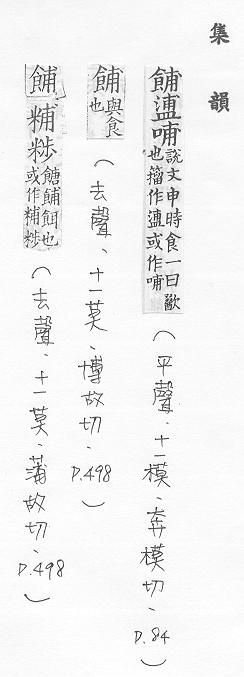 集韻
餔𥂈哺說文申時食一曰歠也籀作𥂈或作哺(平聲、十一模、奔模切、P.84)
餔與食也(去聲、十一莫、博故切、P.498)
餔䊇𥹴餹餔餌也或作䊇𥹴(去聲、十一莫、蒲故切、P.498)